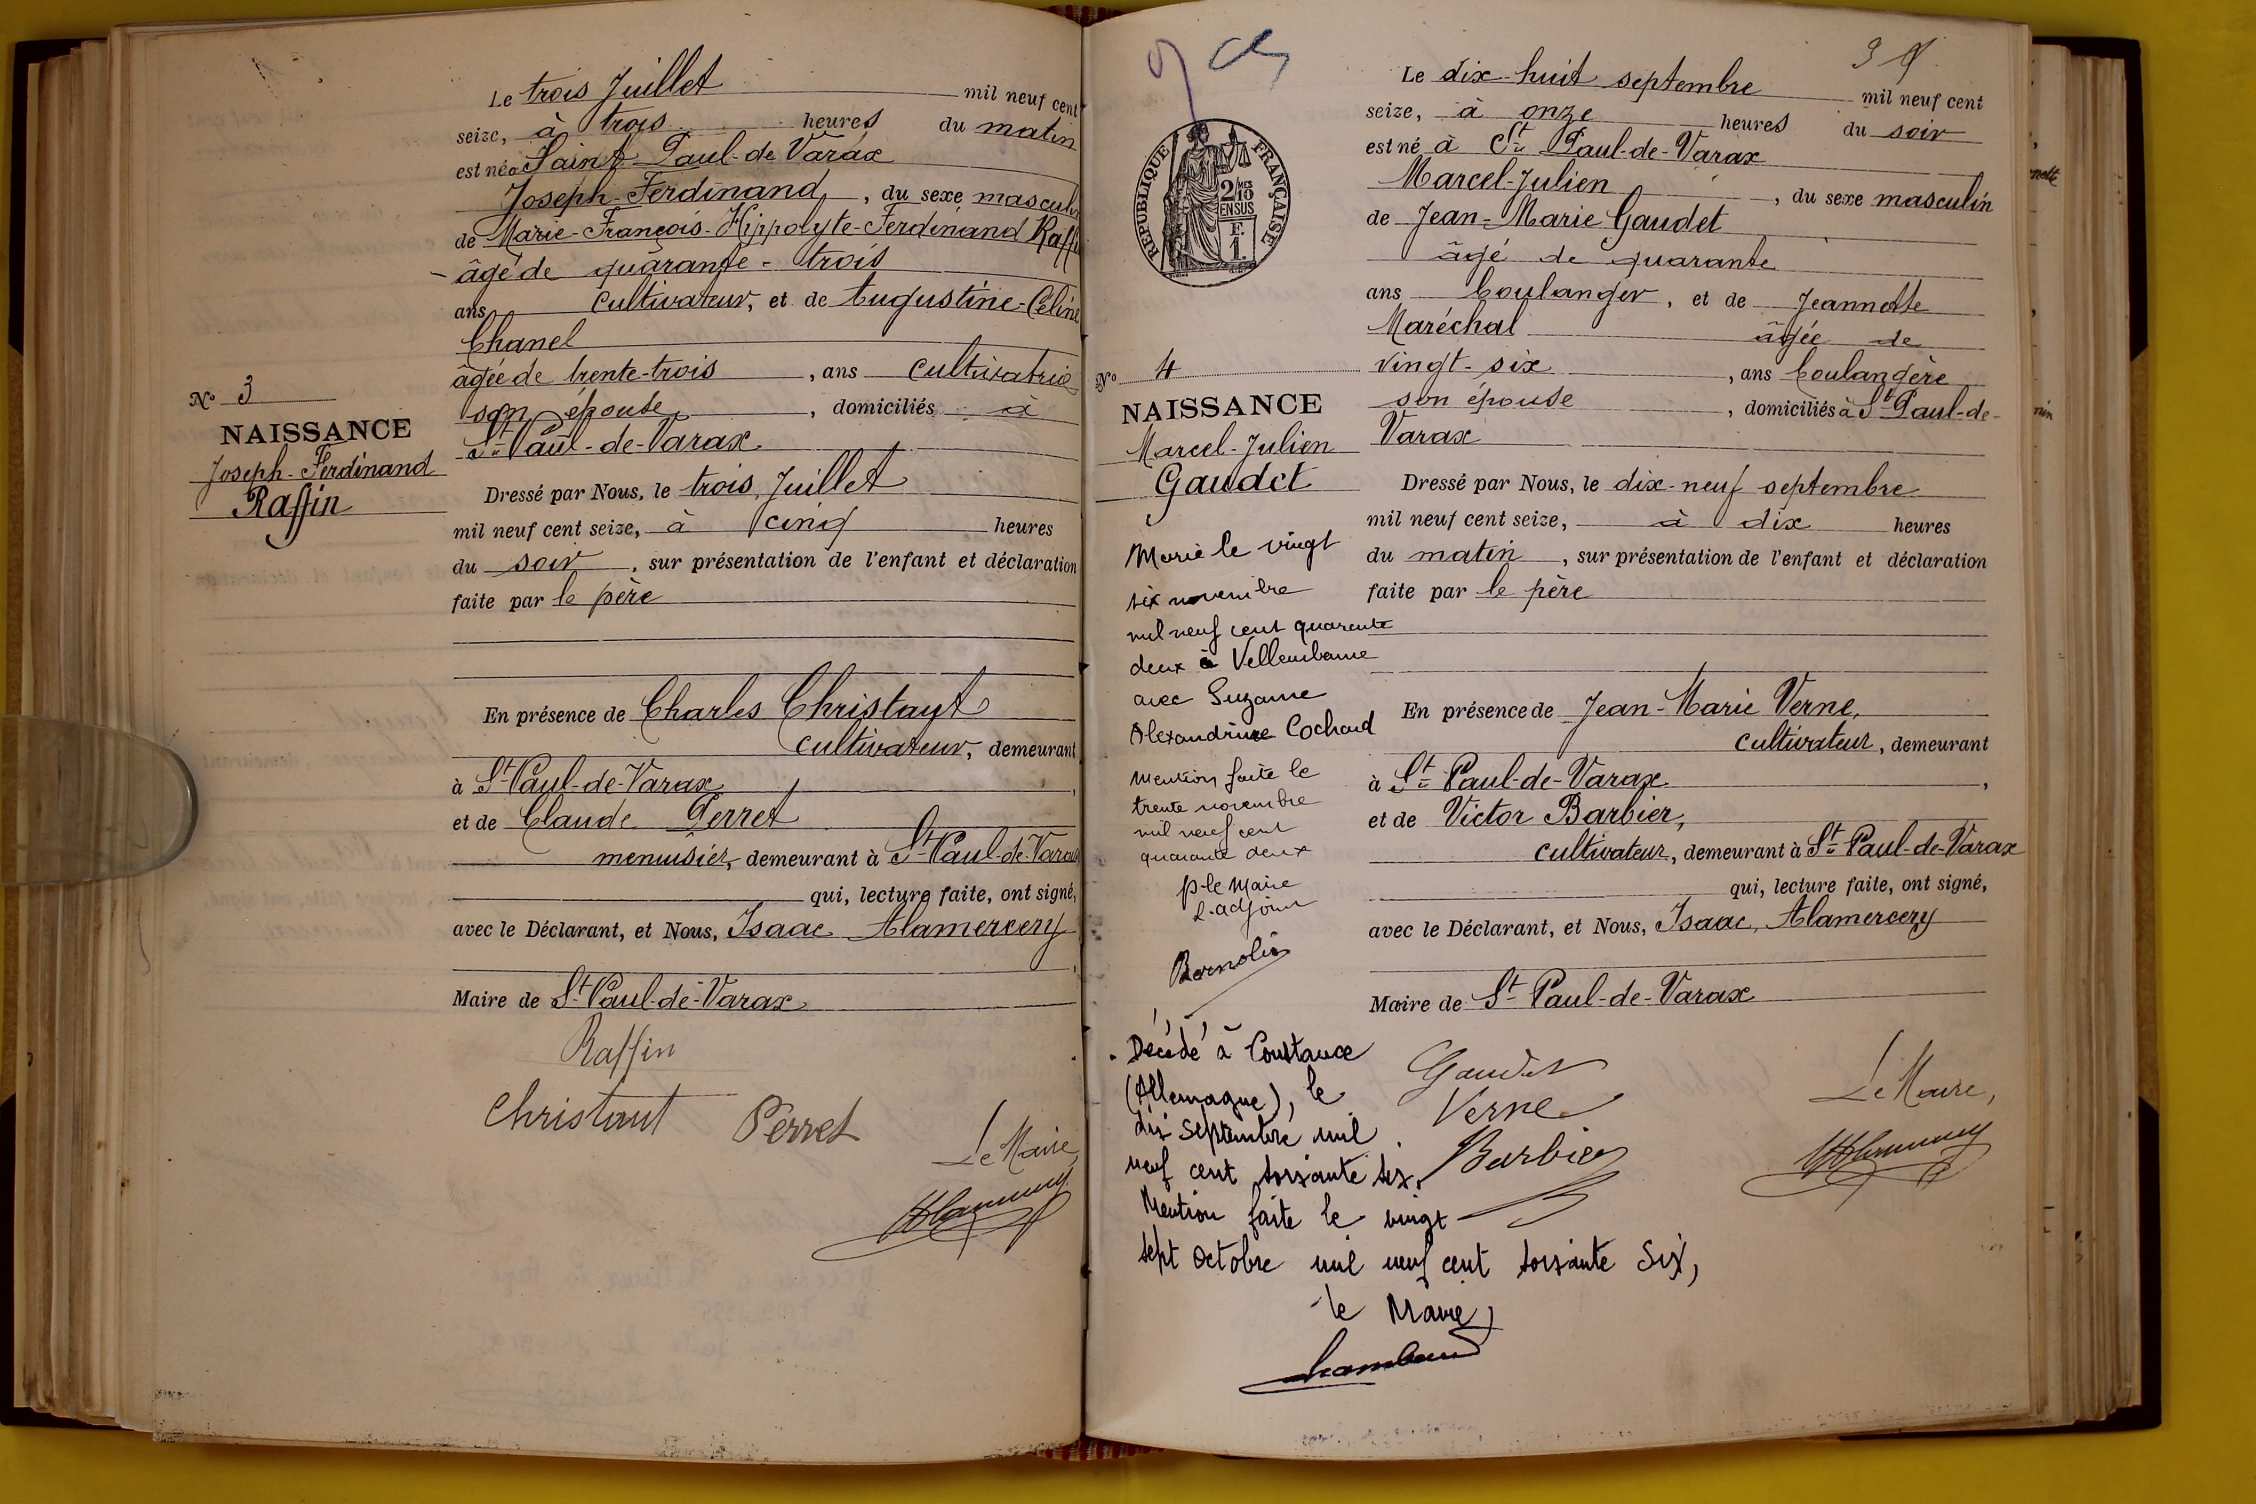 Le trois Juillet mil neuf cent
seize, à trois heures du matin
est né à Saint Paul-de Varax
Joseph-Ferdinand, du sexe masculin
de Marie-François-Hippolyte-Ferdinand Raffin
âgé de quarante-trois
ans cultivateur, et de Augustine-Céline
Chanel
âgée de trente-trois, ans cultivatrice
son épouse, domiciliés à
St Paul-de-Varax
Nº 3
NAISSANCE
Joseph-Ferdinand
Raffin
Dressé par Nous, le trois Juillet
mil neuf cent seize, à cinq heures
du soir, sur présentation de l'enfant et déclaration
faite par le père
En présence de Charles Christaut
cultivateur, demeurant
à St Paul-de-Varax,
et de Claude Perret
menuisier, demeurant à St Paul-de-Varax
qui, lecture faite, ont signé,
avec le Déclarant, et Nous, Isaac Alamercery,
Maire de St Paul-de-Varax
Raffin
Christaut Perret
Le Maire,
3
RÉPUBLIQUE FRANÇAISE
2/10 MES
EN SUS
F.
1.
Nº 4
NAISSANCE
Marcel-Julien
Gaudet
Marié le vingt
six novembre
mil neuf cent quarante
deux à Villeurbanne
avec Suzanne
Alexandrine Cochard
Mention faite le
trente novembre
mil neuf cent
quarante deux
p. le Maire
l'adjoint
Décédé à Constance
(Allemagne), le
dix septembre mil
neuf cent soixante six.
Mention faite le vingt
sept Octobre mil neuf cent soixante six,
le Maire,
Le dix-huit septembre mil neuf cent
seize, à onze heures du soir
est né à St Paul-de-Varax
Marcel-Julien, du sexe masculin
de Jean-Marie Gaudet
âgé de quarante
ans boulanger, et de Jeannette
Maréchal âgée de
vingt-six, ans boulangère
son épouse, domiciliés à St Paul-de-
Varax
Dressé par Nous, le dix-neuf septembre
mil neuf cent seize, à dix heures
du matin, sur présentation de l'enfant et déclaration
faite par le père
En présence de Jean-Marie Verne,
cultivateur, demeurant
à St Paul-de-Varax,
et de Victor Barbier,
cultivateur, demeurant à St Paul-de-Varax
qui, lecture faite, ont signé,
avec le Déclarant, et Nous, Isaac, Alamercery
Maire de St Paul-de-Varax
Gaudet
Verne
Barbier
Le Maire,